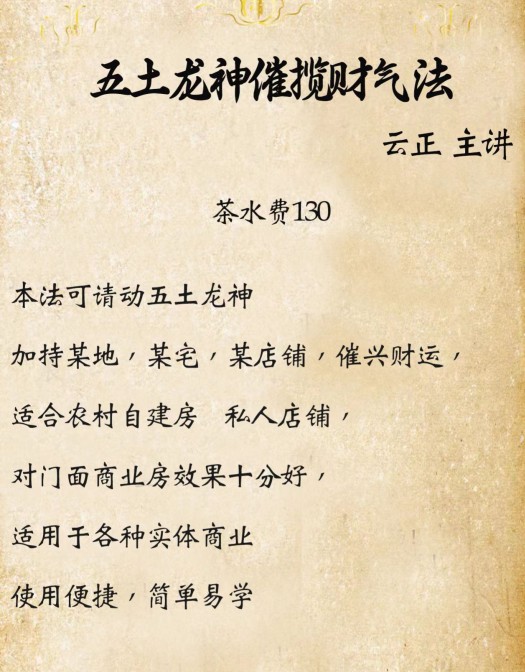 五土龙神催揽财气法
云正 主讲
茶水费130
本法可请动五土龙神
加持某地，某宅，某店铺，催兴财运，
适合农村自建房 私人店铺，
对门面商业房效果十分好，
适用于各种实体商业
使用便捷，简单易学